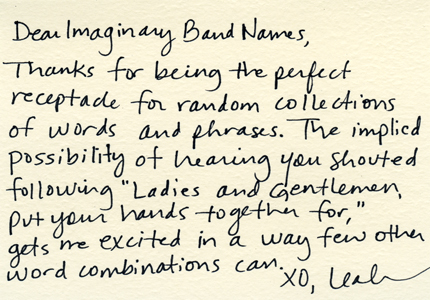 Dear Imaginary Band Names,
Thanks for being the perfect
receptacle for random collections
of words and phrases. The implied
possibility of hearing you shouted
following "Ladies and Gentlemen,
put your hands together for,"
gets me excited in a way few other
word combinations can.
XO, Leah